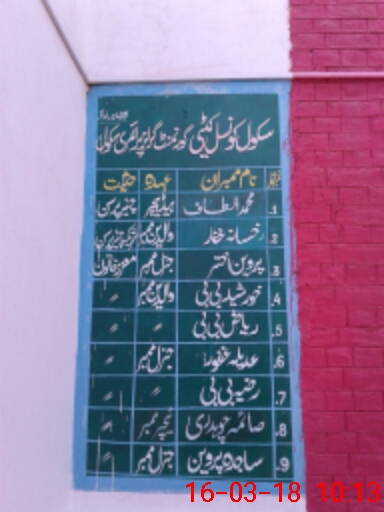 سکول کونسل کمیٹی گورنمنٹ گرلز پرائمری سکول
نمبر نام ممبران عہدہ حیثیت
1. محمد الطاف ہیڈ ٹیچر چیئر پرسن
2. رخسانہ غفار والدین ممبر
3. پروین اختر جنرل ممبر معزز خاتون
4. خورشید بی بی والدین ممبر 〃
5. ریاض بی بی 〃 〃
6. عدیلہ غفور جنرل ممبر 〃
7. رضیہ بی بی 〃 〃
8. صائمہ چوہدری ٹیچر ممبر 〃
9. ساجدہ پروین جنرل ممبر 〃
16-03-18 10:13